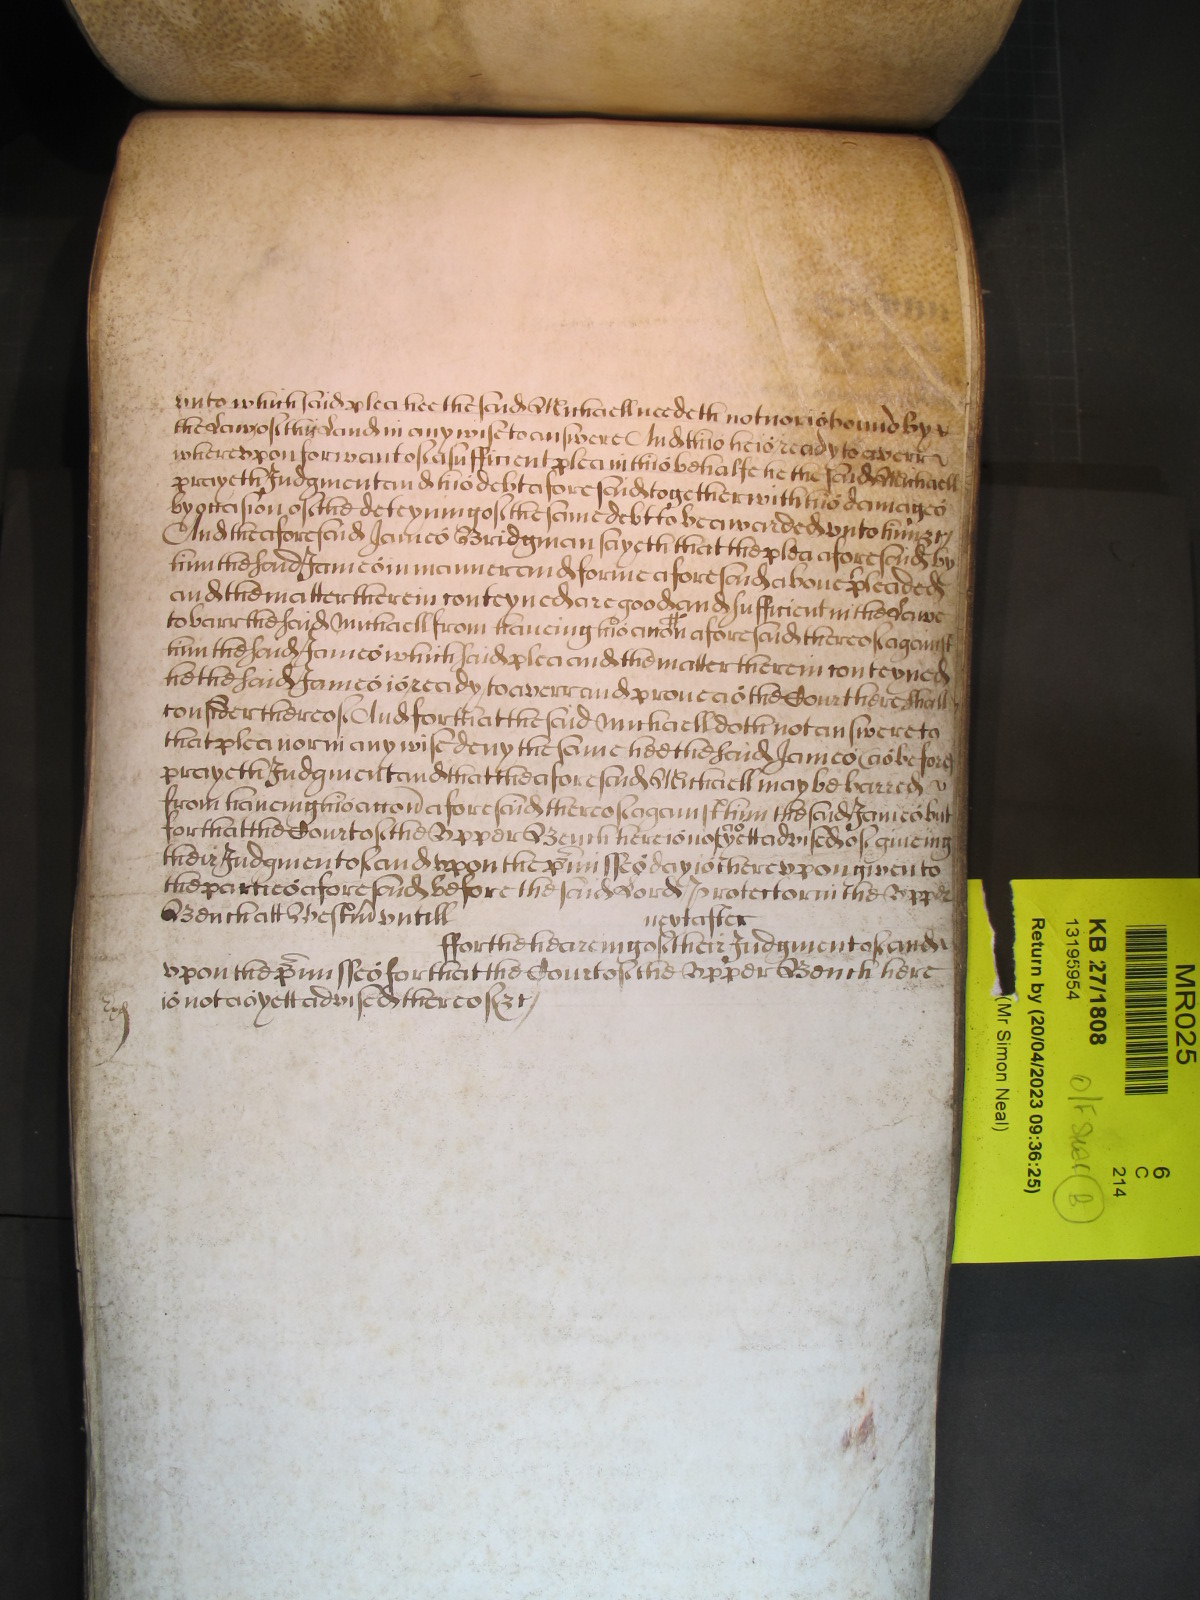 unto which said plea hee the said Michaell needeth not nor is bound by
the Lawe of this Land in any wise to answere And this he is ready to averr
whereupon for want of a sufficient plea in this behalfe he the said Michaell
prayeth Judgment and his debt aforesaid together with his damages
by occasion of the deteyning of the same debt to bee awarded unto him &c
And the aforesaid James Bridgman sayeth that the plea aforesaid by
him the said James in manner and forme aforesaid above pleaded
and the matter therein conteyned are good and sufficient in the Lawe
to barr the said Michaell from haveing his accōn aforesaid thereof against
him the said James which said plea and the matter therein conteyned
he the said James is ready to averr and prove as the Court here shall
consider thereof And for that the said Michaell doth not answere to
that plea nor in any wise deny the same hee the said James as before
prayeth Judgment and that the aforesaid Michaell may be barred
from haveing his accōn aforesaid thereof against him the said James but
for that the Court of the Upper Bench here is not yett advised of giveing
their Judgment of and upon the p̄misses day is thereupon given to
the parties aforesaid before the said Lord Protector in the Upper
Bench att Westm̄ untill next after
ffor the heareing of their Judgment of and
upon the p̄misses for that the Court of the Upper Bench here
is not as yett advised thereof &c
MR025
6
C
214
KB 27/1808
13195954
Return by (20/04/2023 09:36:25)
(Mr Simon Neal)